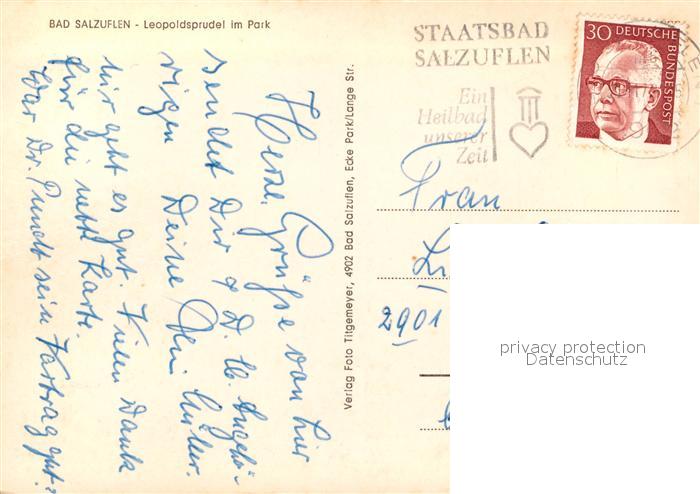 BAD SALZUFLEN - Leopoldsprudel im Park
STAATSBAD
SALZUFLEN
Ein
Heilbad
unserer
Zeit
30 DEUTSCHE BUNDESPOST
Herzl. Grüße von hier
sendet Dir & D. lb. Angehö-
rigen Deine
mir geht es gut. Vielen Dank
für die nette Karte.
War Dr. Pundt sein Vortrag gut?
Verlag Foto Tilgemeyer, 4902 Bad Salzuflen, Ecke Park/Lange Str.
Frau
2901
privacy protection
Datenschutz